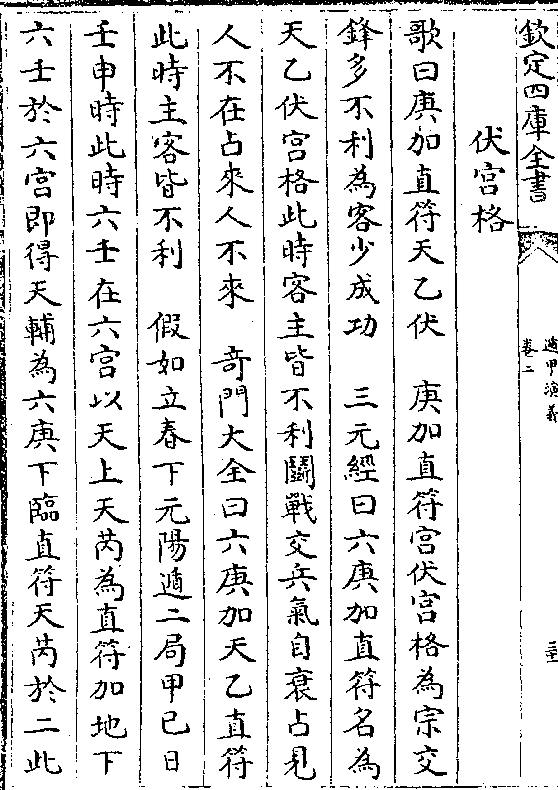 欽定四庫全書
遁甲演義
卷二
伏宮格
歌曰庚加直符天乙伏　庚加直符宮伏宮格為宗交
鋒多不利為客少成功　三元經曰六庚加直符名為
天乙伏宮格此時客主皆不利鬭戰交兵氣自衰占見
人不在占來人不來　奇門大全曰六庚加天乙直符
此時主客皆不利　假如立春下元陽遁二局甲已日
壬申時此時六壬在六宮以天上天芮為直符加地下
六壬於六宮即得天輔為六庚下臨直符天芮於二此